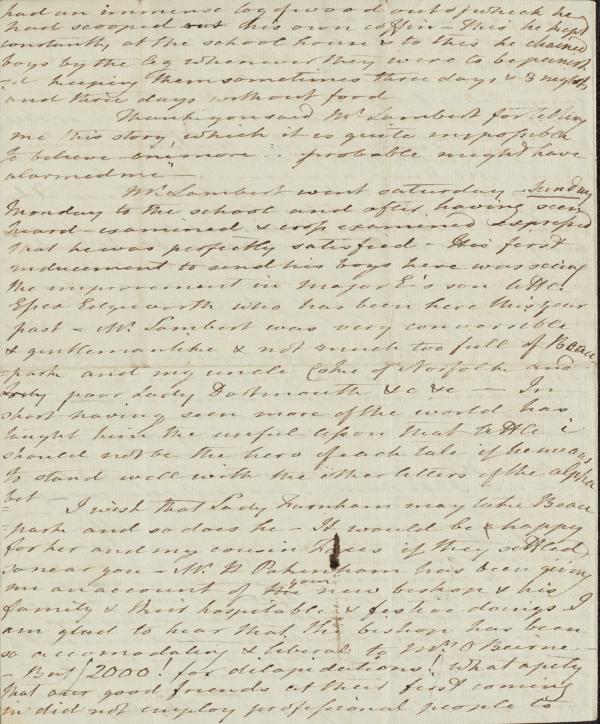 had an immense log of wood out of which he
had scooped out his own coffin – This he kept
constantly at the school house & to this he chained
boys by the leg whenever they were to be punish
- keeping them sometimes three days & 3 nights
and three days without food
Thank you said Mr Lambert for telling
me this story which it is quite impossible
to believe one more probable might have
alarmed me"
Mr Lambert went saturday – Sunday
Monday to the school and after having seen
heard – examined & cross examined expressed
that he was perfectly satisfied – His first
inducement to send his boys here was seeing
the improvement in major E's son little
Edgeworth who has been here this year
past – Mr. Lambert was very conversible
& gentlemanlike & not much too full of Beau
-park and my uncle Coke of Norfolk and
poor Lady Dartmouth &c &c – In
short having seen more of the world has
taught him the useful lesson that little i
should not be the hero of each tale if he means
to stand well with the other letters of the alpha
bet –
I wish that Lady Farnham may take Beau
=park and so does he – It would be happy
for her and my cousin Foxes if they settled
so near you – Mr. N Pakenham has been giving
me an account of your new bishop & his
family & their hospitable & festive doings I
am glad to hear that the bishop has been
so accomodating & liberal to Mrs. O Beirne –
– But £2000! for dilapidations! What a pity
that our good friends at their first coming
in did not employ professional people to